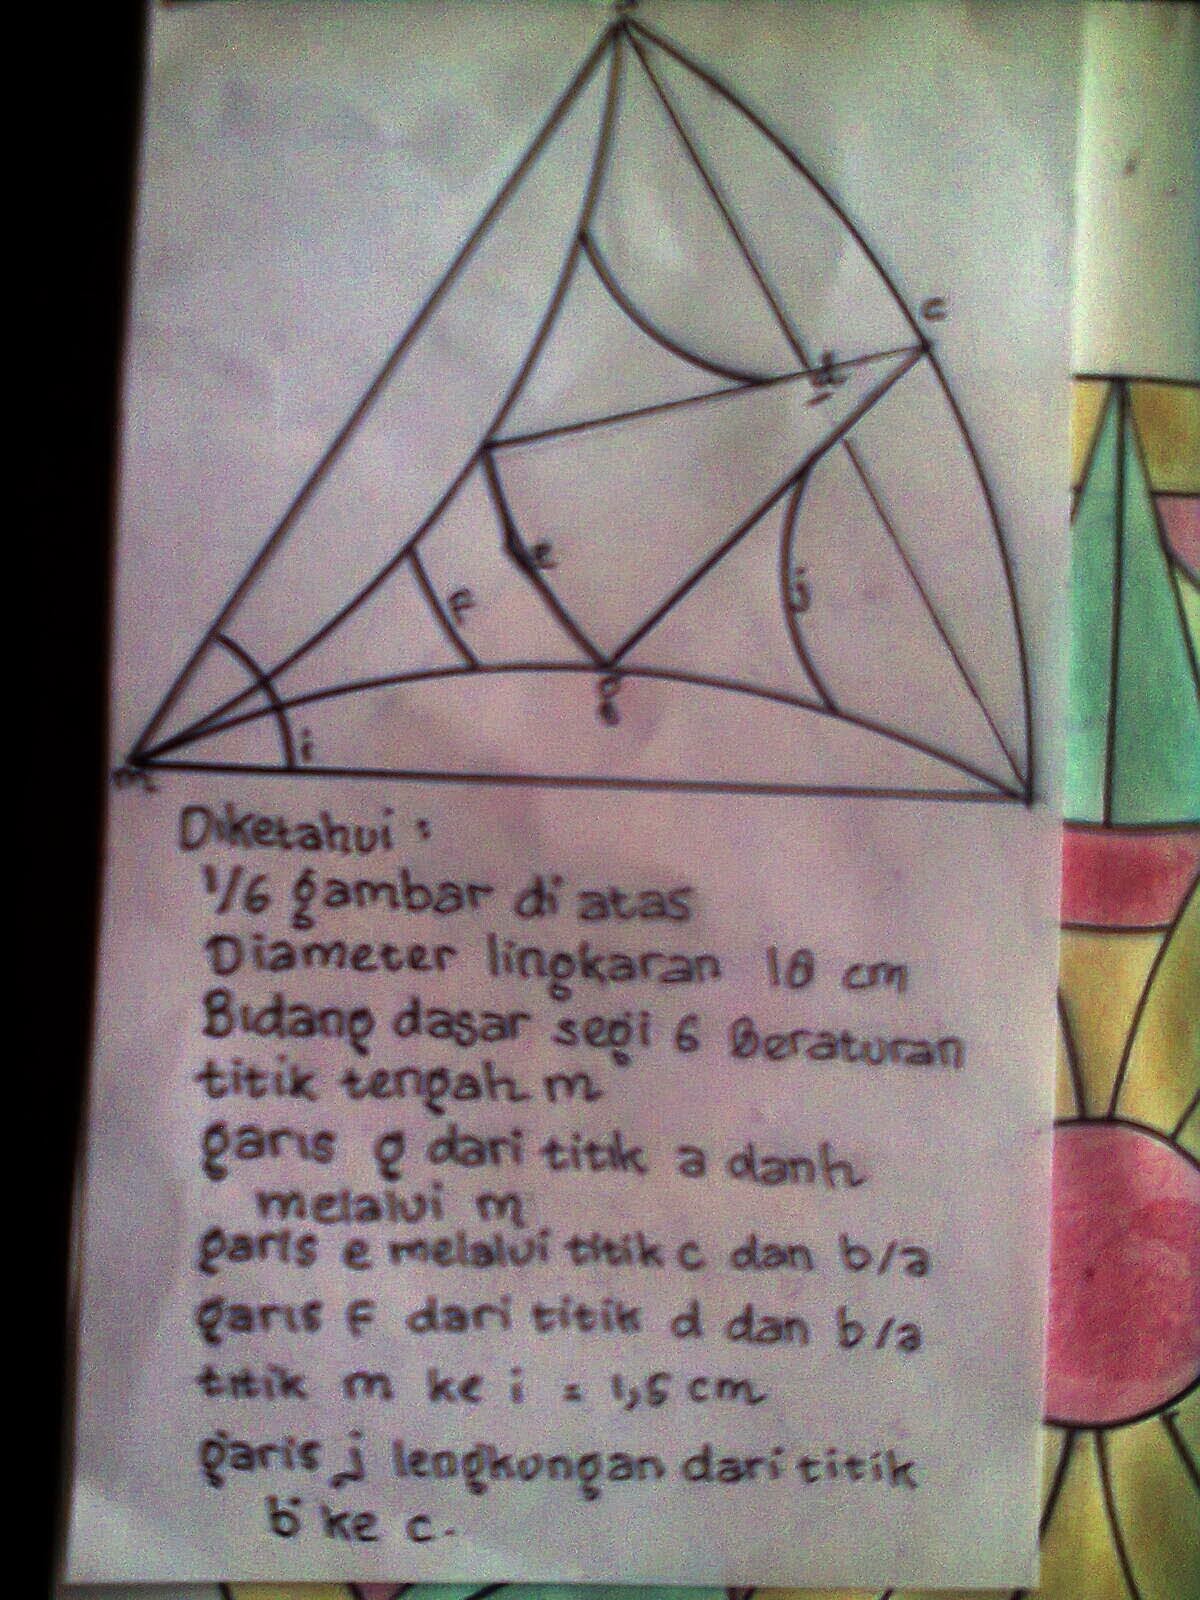 c
d
e
F
j
g
i
m
Diketahui :
1/6 gambar di atas
Diameter lingkaran 18 cm
Bidang dasar segi 6 Beraturan
titik tengah m
garis g dari titik a dan h
melalui m
garis e melalui titik c dan b/a
garis F dari titik d dan b/a
titik m ke i = 1,5 cm
garis j lengkongan dari titik
b ke c.